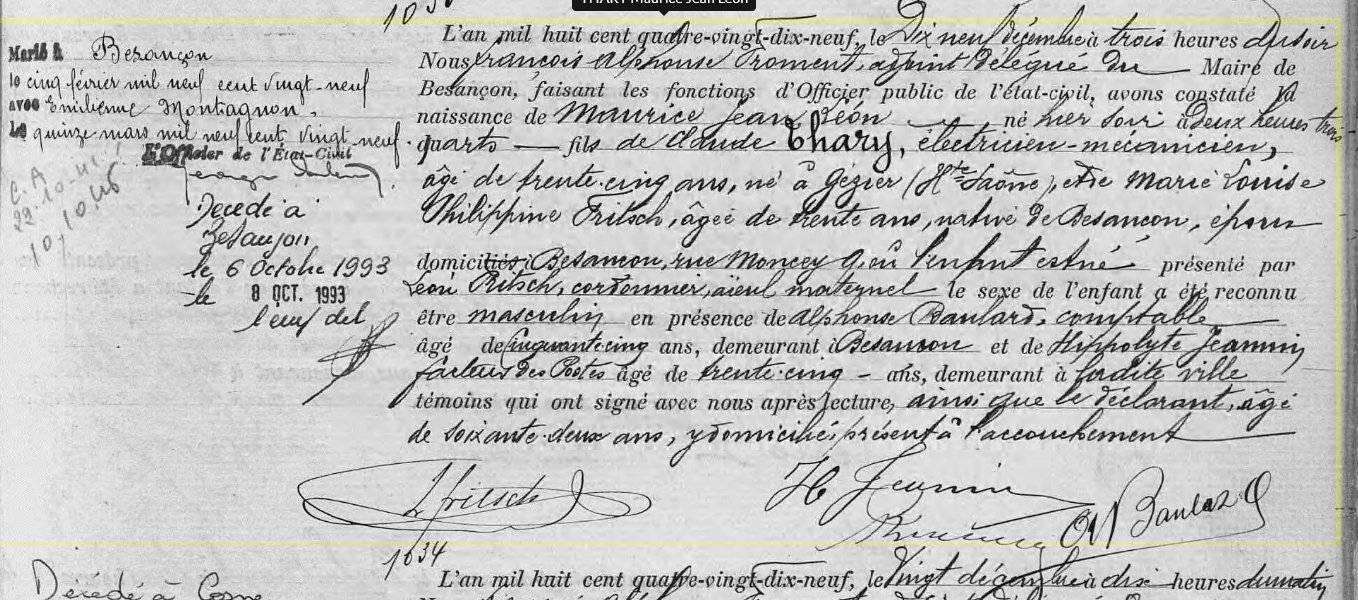 THARY Maurice Jean Léon
L'an mil huit cent quatre-vingt-dix-neuf, le Dix neuf décembre à trois heures du soir
Nous François Alphonse Froment, adjoint délégué du Maire de
Besançon, faisant les fonctions d'Officier public de l'état-civil, avons constaté la
naissance de Maurice Jean Léon né hier soir à deux heures trois
quarts fils de Claude Thary, électricien-mécanicien,
âgé de trente-cinq ans, né à Gézier (Hte Saône), et de Marie Louise
Philippine Fritsch, âgée de trente ans, native de Besançon, époux
domiciliés à Besançon, rue Moncey 9, où l'enfant est né présenté par
Léon Fritsch, cordonnier, aïeul maternel le sexe de l'enfant a été reconnu
être masculin en présence de Alphonse Baulard, comptable
âgé de cinquante cinq ans, demeurant à Besançon et de Hippolyte Jeannin,
facteur des Postes âgé de trente-cinq - ans, demeurant à ladite ville
témoins qui ont signé avec nous après lecture, ainsi que le déclarant, âgé
de soixante-deux ans, y domicilié, présent à l'accouchement
L fritsch
H Jeannin
Baulard
Marié à Besançon
le cinq février mil neuf cent vingt-neuf
avec Emilienne Montagnon.
Le quinze mars mil neuf cent vingt neuf.
L'Officier de l'État-Civil
C. A
22.10.41
Décédé à
Besançon
le 6 Octobre 1993
le 8 OCT. 1993
1634
L'an mil huit cent quatre-vingt-dix-neuf, le Vingt décembre à dix heures du matin
Décédé à Cosne